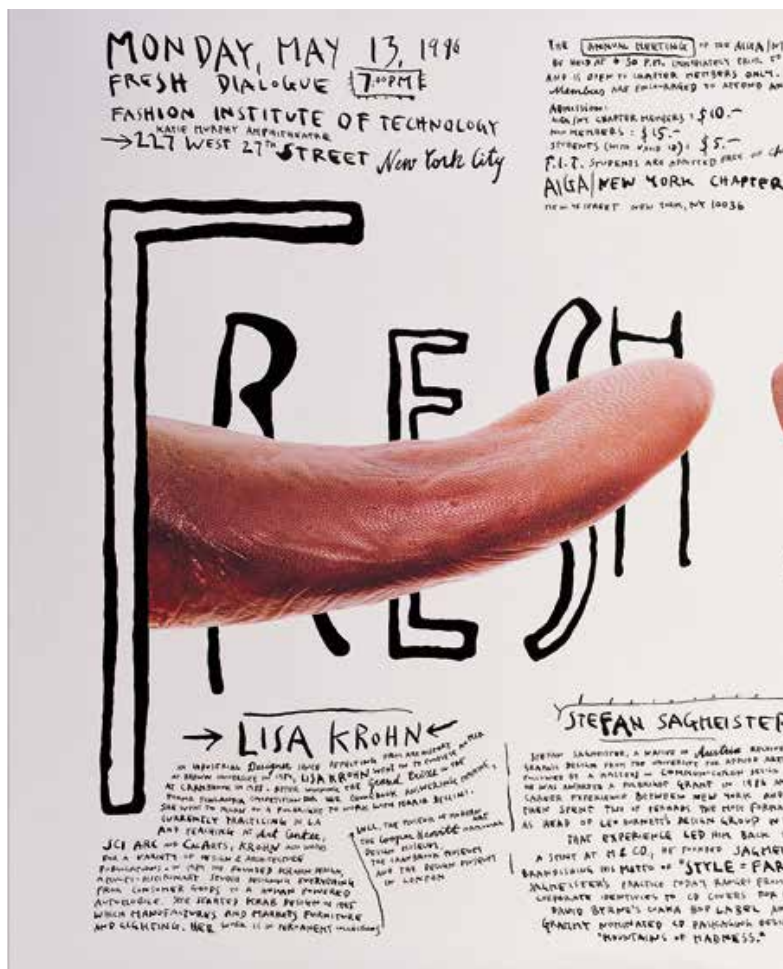 MONDAY, MAY 13, 1996
FRESH DIALOGUE 7.00PM
FASHION INSTITUTE OF TECHNOLOGY
KATIE MURPHY AMPHITHEATRE
→227 WEST 27TH STREET New York City
THE ANNUAL MEETING OF THE AIGA/N
BE HELD AT 6 30 P.M. IMMEDIATELY PRIOR TO
AND IS OPEN TO CHAPTER MEMBERS ONLY.
Members ARE ENCOURAGED TO ATTEND AN
ADMISSION:
AIGA/NY CHAPTER MEMBERS: $10.-
NON MEMBERS: $15.-
STUDENTS (WITH VALID ID): $5.-
F.I.T. STUDENTS ARE ADMITTED FREE OF
AIGA/NEW YORK CHAPTER
NEW YORK, NY 10036
FRESH
→ LISA KROHN ←
AN INDUSTRIAL Designer SINCE
AT BROWN UNIVERSITY IN LISA KROHN WENT ON TO
AT CRANBROOK IN 1988. AFTER WINNING THE Grand Prize IN THE
FORMA FINLANDIA COMPETITION FOR HER PHONEBOOK ANSWERING MACHINE,
SHE WENT TO MILAN ON A FULBRIGHT TO WORK WITH MARIO BELLINI.
CURRENTLY PRACTICING IN LA
AND TEACHING AT Art Center,
SCI ARC AND CALARTS, KROHN HAS
FOR A VARIETY OF DESIGN & ARCHITECTURE
PUBLICATIONS. IN SHE FOUNDED KROHN DESIGN,
A MULTI-DISCIPLINARY STUDIO DESIGNING EVERYTHING
FROM CONSUMER GOODS TO A HUMAN POWERED
AUTOMOBILE. SHE STARTED KRAB DESIGN IN 1995
WHICH MANUFACTURES AND MARKETS FURNITURE
AND LIGHTING. HER WORK IS IN PERMANENT COLLECTIONS
THE MUSEUM OF MODERN
THE Cooper Hewitt NATIONAL
DESIGN MUSEUM,
THE CRANBROOK MUSEUM
AND THE DESIGN MUSEUM
IN LONDON
STEFAN SAGMEISTER
STEFAN SAGMEISTER, A NATIVE OF Austria RECEIVE
GRAPHIC DESIGN FROM THE UNIVERSITY FOR APPLIED ART
FOLLOWED BY A MASTERS IN COMMUNICATION DESIGN
HE WAS AWARDED A FULBRIGHT GRANT IN 1986 AN
CAREER EXPERIENCE BETWEEN NEW YORK AND
THEN SPENT TWO OF PERHAPS THE MOST FORMA
AS HEAD OF LEO BURNETT'S DESIGN GROUP IN
THAT EXPERIENCE LED HIM BACK
A STINT AT M&CO., HE FOUNDED SAGME
BRANDISHING HIS MOTTO OF "STYLE = FAR
SAGMEISTER'S PRACTICE TODAY RANGES FROM
CORPORATE IDENTITIES TO CD COVERS FOR
DAVID BYRNE'S LUAKA BOP LABEL AN
GRAMMY NOMINATED CD PACKAGING DESI
"MOUNTAINS OF MADNESS."